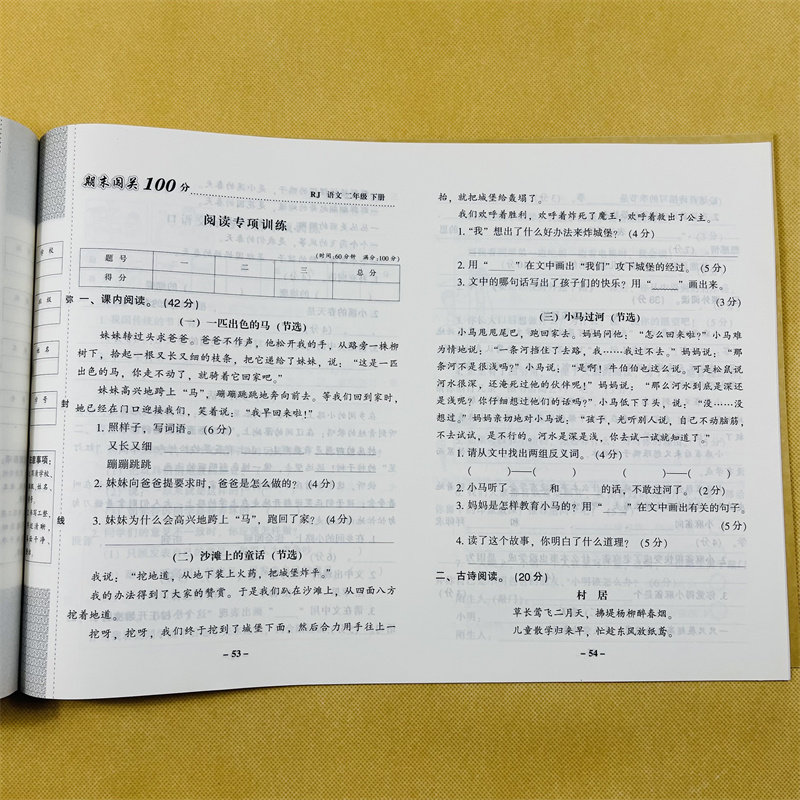 期末闯关100分
RJ 语文 二年级 下册
阅读专项训练
(时间:60分钟 满分:100分)
题号 一 二 三 总分
得分
弥
封
线
一、课内阅读。(42分)
(一)一匹出色的马(节选)
妹妹转过头求爸爸。爸爸不作声，他松开我的手，从路旁一株柳
树下，拾起一根又长又细的枝条，把它递给了妹妹，说：“这是一匹
出色的马，你走不动了，就骑着它回家吧。”
妹妹高兴地跨上“马”，蹦蹦跳跳地奔向前去。等我们回到家时，
她已经在门口迎接我们，笑着说：“我早回来啦!”
1. 照样子，写词语。(6分)
又长又细
蹦蹦跳跳
2. 妹妹向爸爸提要求时，爸爸是怎么做的？(4分)
3. 妹妹为什么会高兴地跨上“马”，跑回了家？(4分)
(二)沙滩上的童话(节选)
我说：“挖地道，从地下装上火药，把城堡炸平。”
我的办法得到了大家的赞赏。于是我们趴在沙滩上，从四面八方
挖着地道。
挖呀，挖呀，我们终于挖到了城堡下面，然后合力用手往上一
- 53 -
抬，就把城堡给轰塌了。
我们欢呼着胜利，欢呼着炸死了魔王，欢呼着救出了公主。
1. “我”想出了什么好办法来炸城堡？(4分)
2. 用“____”在文中画出“我们”攻下城堡的经过。(5分)
3. 文中的哪句话写出了孩子们的快乐？用“﹏﹏”画出来。
(3分)
(三)小马过河(节选)
小马甩甩尾巴，跑回家去。妈妈问他：“怎么回来啦?”小马难
为情地说：“一条河挡住了去路，我……我过不去。”妈妈说：“那
条河不是很浅吗?”小马说：“是啊!牛伯伯也这么说。可是松鼠说
河水很深，还淹死过他的伙伴呢!”妈妈说：“那么河水到底是深还
是浅呢?你仔细想过他们的话吗?”小马低下了头，说：“没……没
想过。”妈妈亲切地对小马说：“孩子，光听别人说，自己不动脑筋，
不去试试，是不行的。河水是深是浅，你去试一试就知道了。”
1. 请从文中找出两组反义词。(4分)
(　　)—(　　) (　　)—(　　)
2. 小马听了____和____的话，不敢过河了。(2分)
3. 妈妈是怎样教育小马的？用“____”在文中画出有关的句子。
(5分)
4. 读了这个故事，你明白了什么道理？(5分)
二、古诗阅读。(20分)
村 居
草长莺飞二月天，拂堤杨柳醉春烟。
儿童散学归来早，忙趁东风放纸鸢。
- 54 -